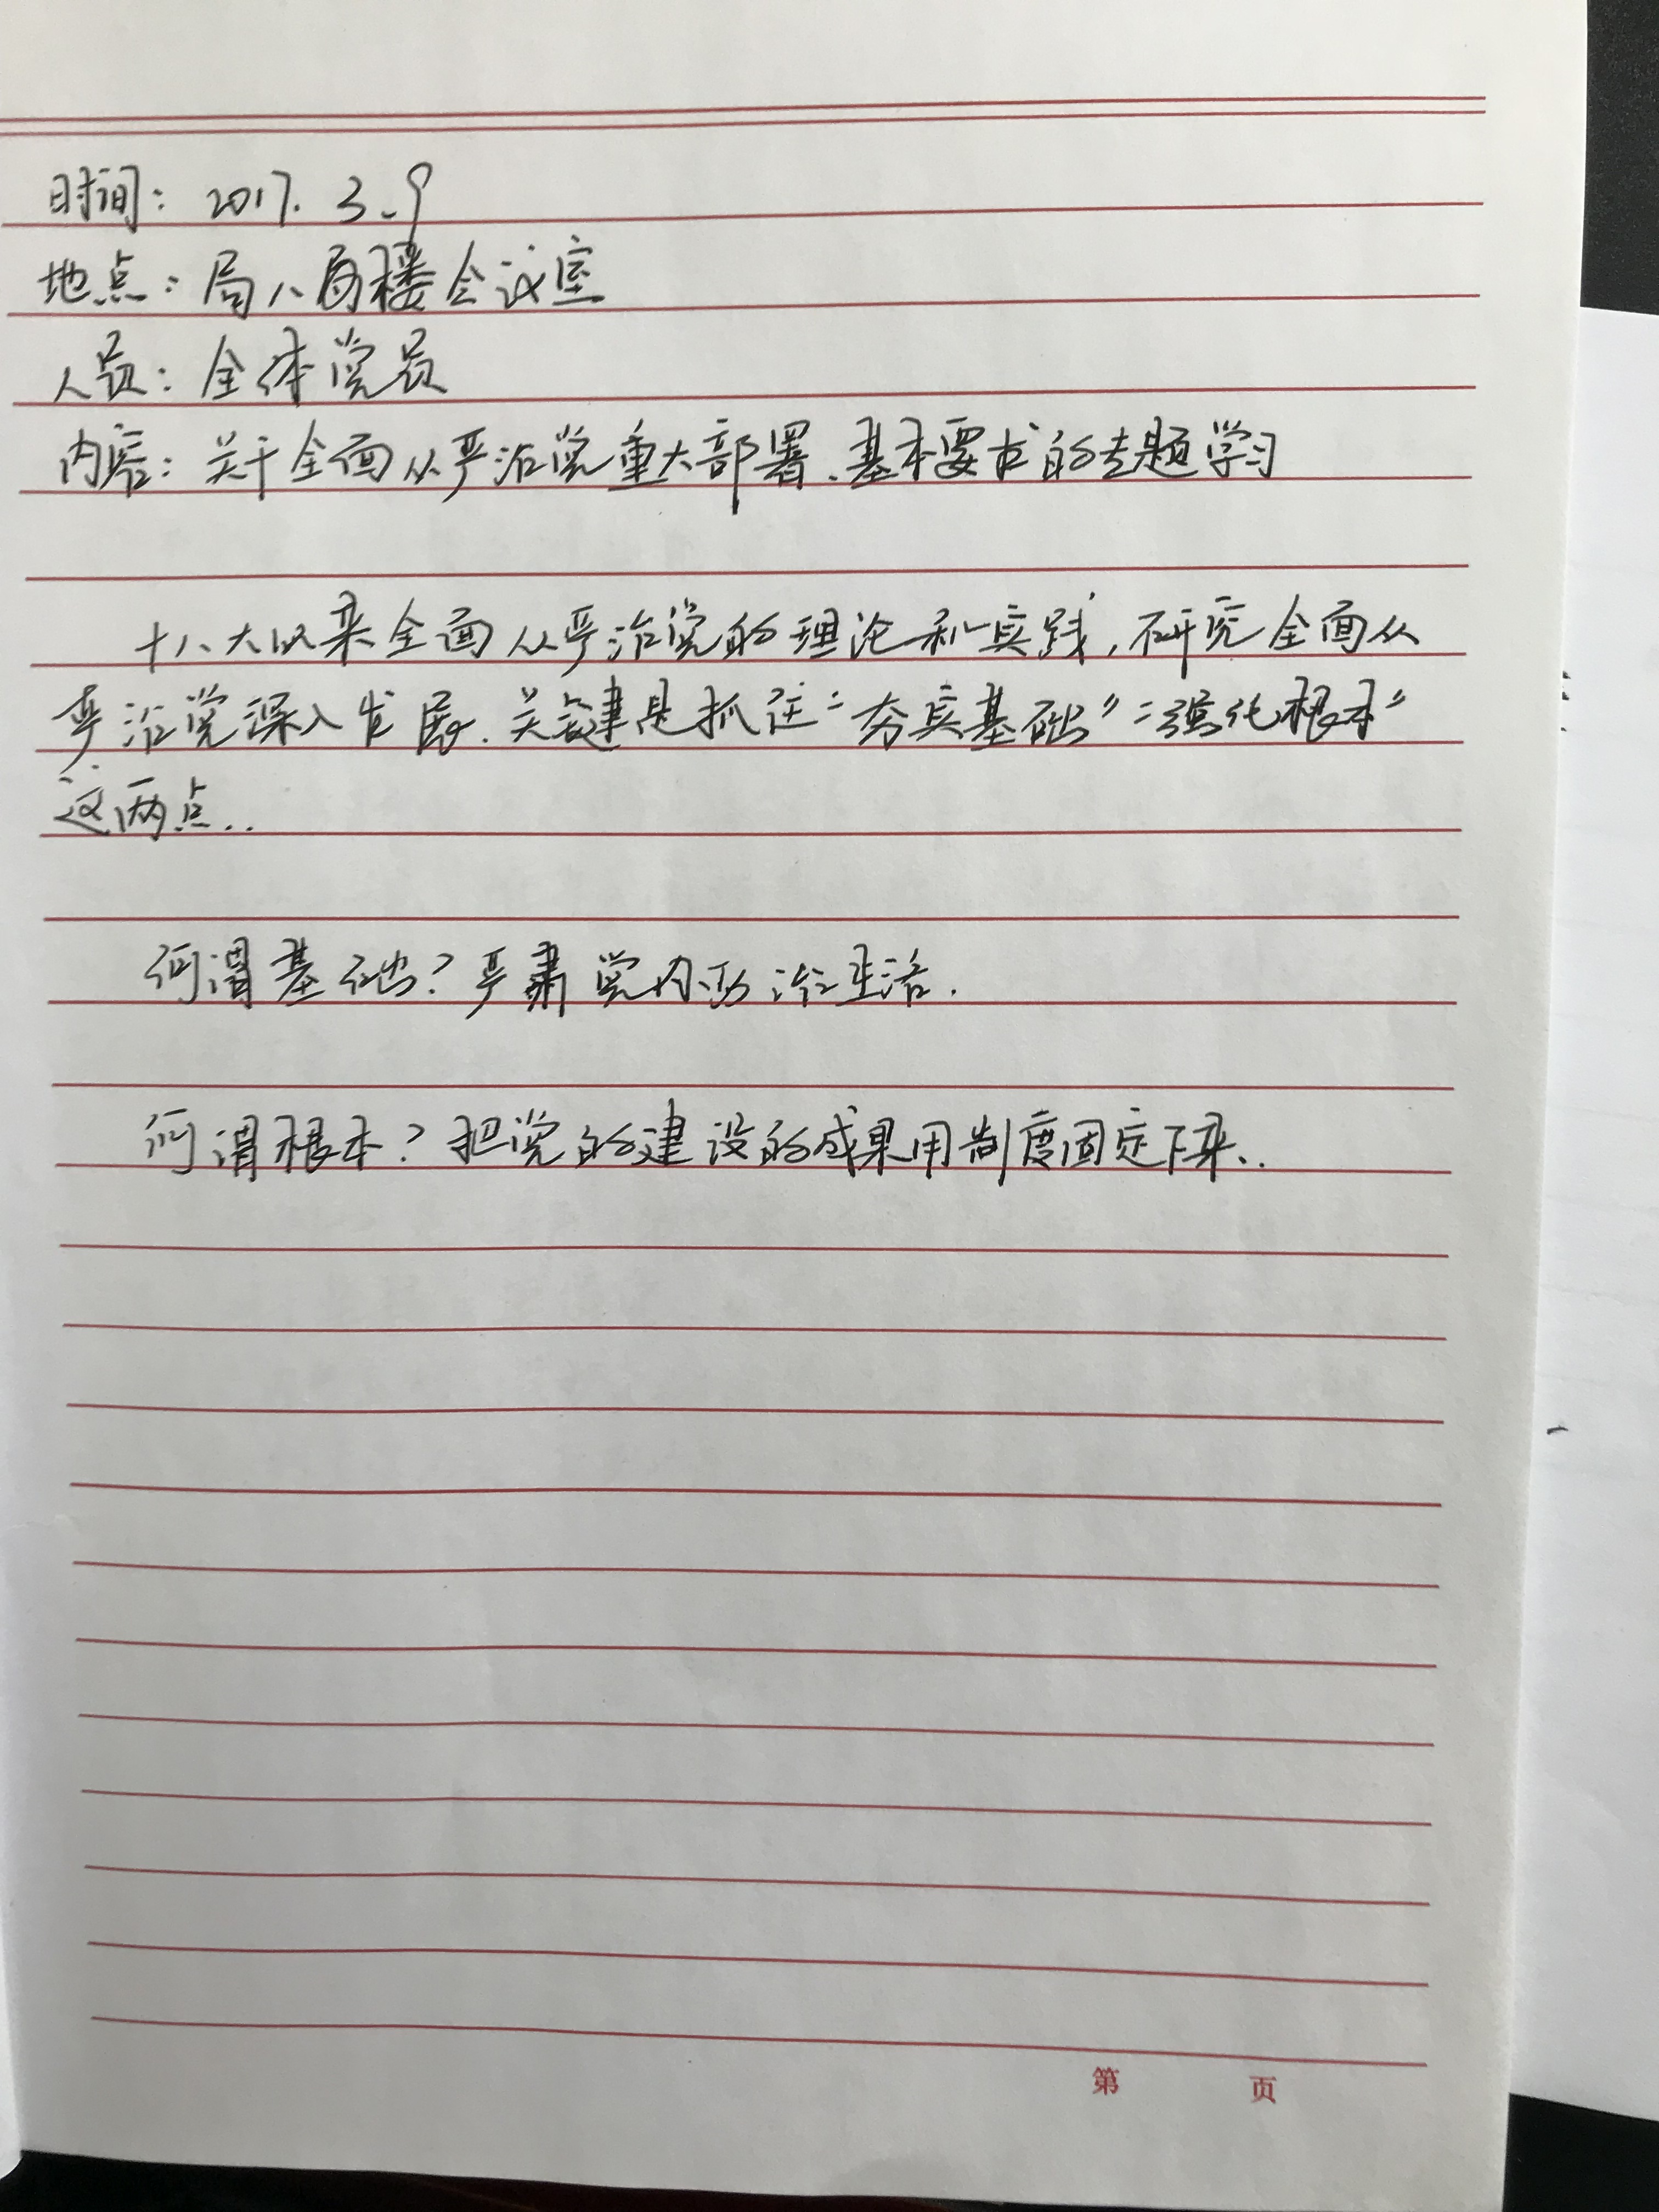 时间：2017.3.9
地点：局八局楼会议室
人员：全体党员
内容：关于全面从严治党重大部署、基本要求的专题学习
十八大以来全面从严治党的理论和实践，研究全面从
严治党深入发展、关键是抓住“夯实基础”“强化根本”
这两点..
何谓基础？严肃党内政治生活.
何谓根本？把党的建设的成果用制度固定下来..
第 页